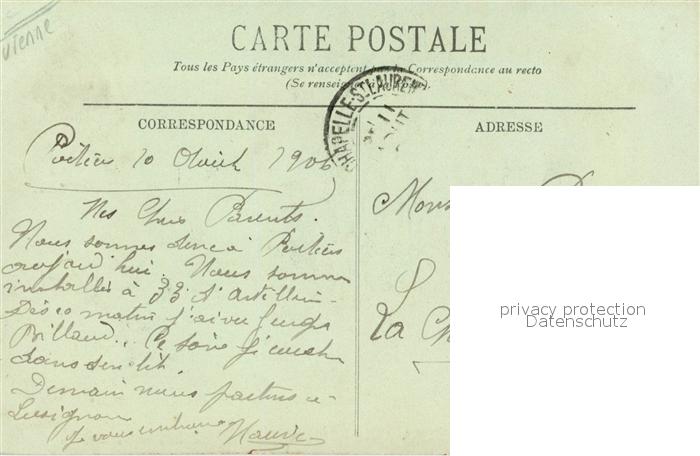 Vienne
CARTE POSTALE
Tous les Pays étrangers n'acceptent pas la Correspondance au recto
(Se renseigner à la Poste).
CHAPELLE-ST-LAURENT
11
AOUT
CORRESPONDANCE
ADRESSE
Poitiers 10 Août 1906
Mes Chers Parents.
Nous sommes donc à Poitiers
aujourd'hui. Nous sommes
installés à 33 d'artillerie
Dès ce matin j'ai vu
Billaud. Ce soir je couche
dans un lit.
Demain nous partons à
Lusignan
Je vous embrasse
Mons
La Ch
privacy protection
Datenschutz